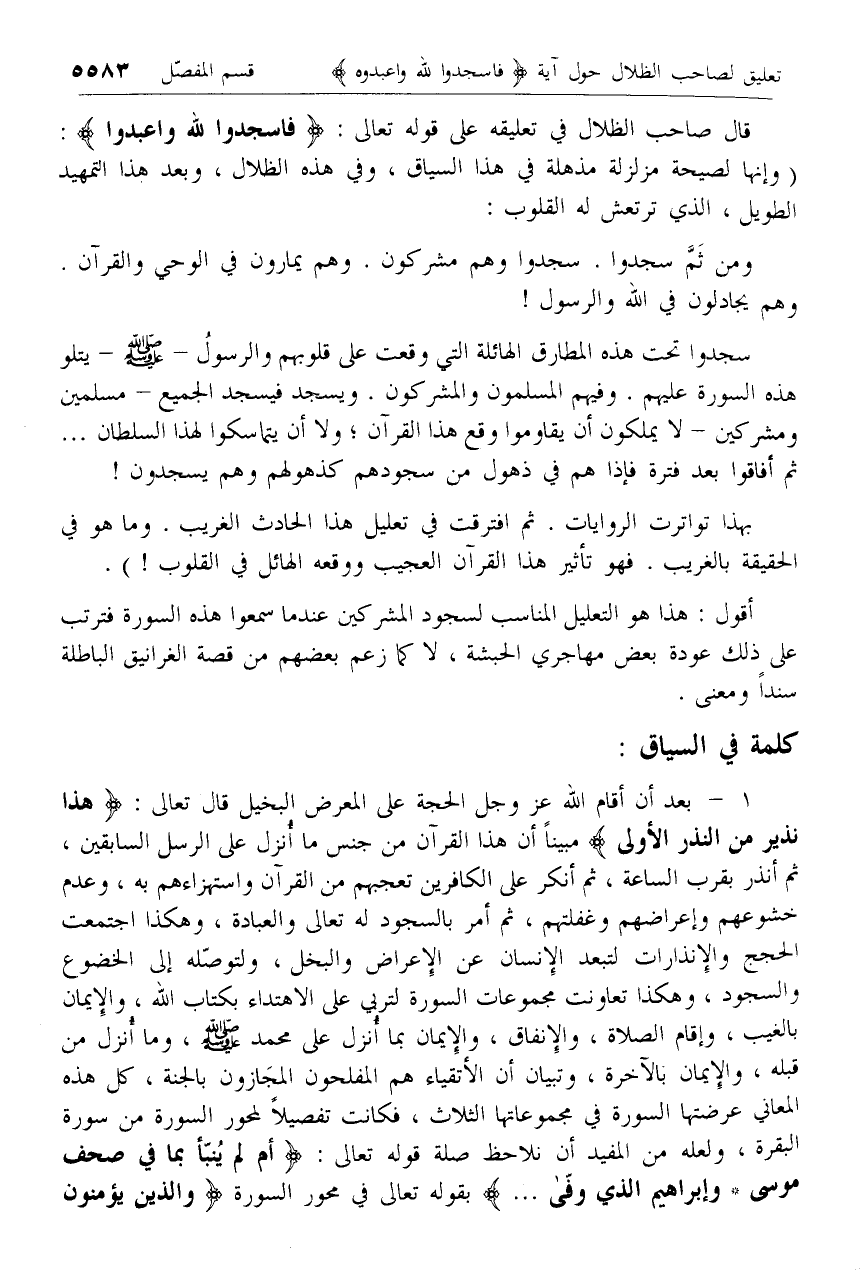 تعليق لصاحب الظلال حول آية ﴿ فاسجدوا لله واعبدوه ﴾ قسم المفصّل ٥٥٨٣
قال صاحب الظلال في تعليقه على قوله تعالى : ﴿ فاسجدوا لله واعبدوا ﴾ :
( وإنها لصيحة مزلزلة مذهلة في هذا السياق ، وفي هذه الظلال ، وبعد هذا التمهيد
الطويل ، الذي ترتعش له القلوب :
ومن ثَمَّ سجدوا . سجدوا وهم مشركون . وهم يمارون في الوحي والقرآن .
وهم يجادلون في الله والرسول !
سجدوا تحت هذه المطارق الهائلة التي وقعت على قلوبهم والرسولُ – ﷺ – يتلو
هذه السورة عليهم . وفيهم المسلمون والمشركون . ويسجد فيسجد الجميع – مسلمين
ومشركين – لا يملكون أن يقاوموا وقع هذا القرآن ؛ ولا أن يتماسكوا لهذا السلطان ...
ثم أفاقوا بعد فترة فإذا هم في ذهول من سجودهم كذهولهم وهم يسجدون !
بهذا تواترت الروايات . ثم افترقت في تعليل هذا الحادث الغريب . وما هو في
الحقيقة بالغريب . فهو تأثير هذا القرآن العجيب ووقعه الهائل في القلوب ! ) .
أقول : هذا هو التعليل المناسب لسجود المشركين عندما سمعوا هذه السورة فترتب
على ذلك عودة بعض مهاجري الحبشة ، لا كما زعم بعضهم من قصة الغرانيق الباطلة
سنداً ومعنى .
كلمة في السياق :
١ – بعد أن أقام الله عز وجل الحجة على المعرض البخيل قال تعالى : ﴿ هذا
نذير من النذر الأولى ﴾ مبيناً أن هذا القرآن من جنس ما أُنزل على الرسل السابقين ،
ثم أنذر بقرب الساعة ، ثم أنكر على الكافرين تعجبهم من القرآن واستهزاءهم به ، وعدم
خشوعهم وإعراضهم وغفلتهم ، ثم أمر بالسجود له تعالى والعبادة ، وهكذا اجتمعت
الحجج والإنذارات لتبعد الإنسان عن الإعراض والبخل ، ولتوصّله إلى الخضوع
والسجود ، وهكذا تعاونت مجموعات السورة لتربي على الاهتداء بكتاب الله ، والإيمان
بالغيب ، وإقام الصلاة ، والإنفاق ، والإيمان بما أُنزل على محمد ﷺ ، وما أُنزل من
قبله ، والإيمان بالآخرة ، وتبيان أن الأتقياء هم المفلحون المجَازون بالجنة ، كل هذه
المعاني عرضتها السورة في مجموعاتها الثلاث ، فكانت تفصيلاً لمحور السورة من سورة
البقرة ، ولعله من المفيد أن نلاحظ صلة قوله تعالى : ﴿ أم لم يُنبّأ بما في صحف
موسى * وإبراهيم الذي وفّىٰ ... ﴾ بقوله تعالى في محور السورة ﴿ والذين يؤمنون